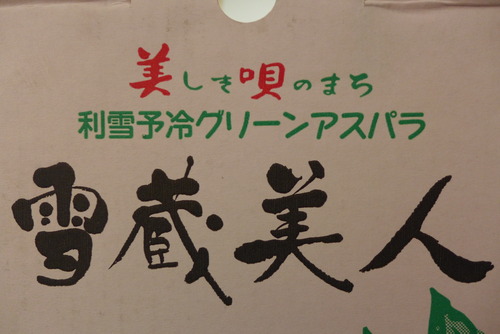 美しき唄のまち
利雪予冷グリーンアスパラ
雪蔵美人